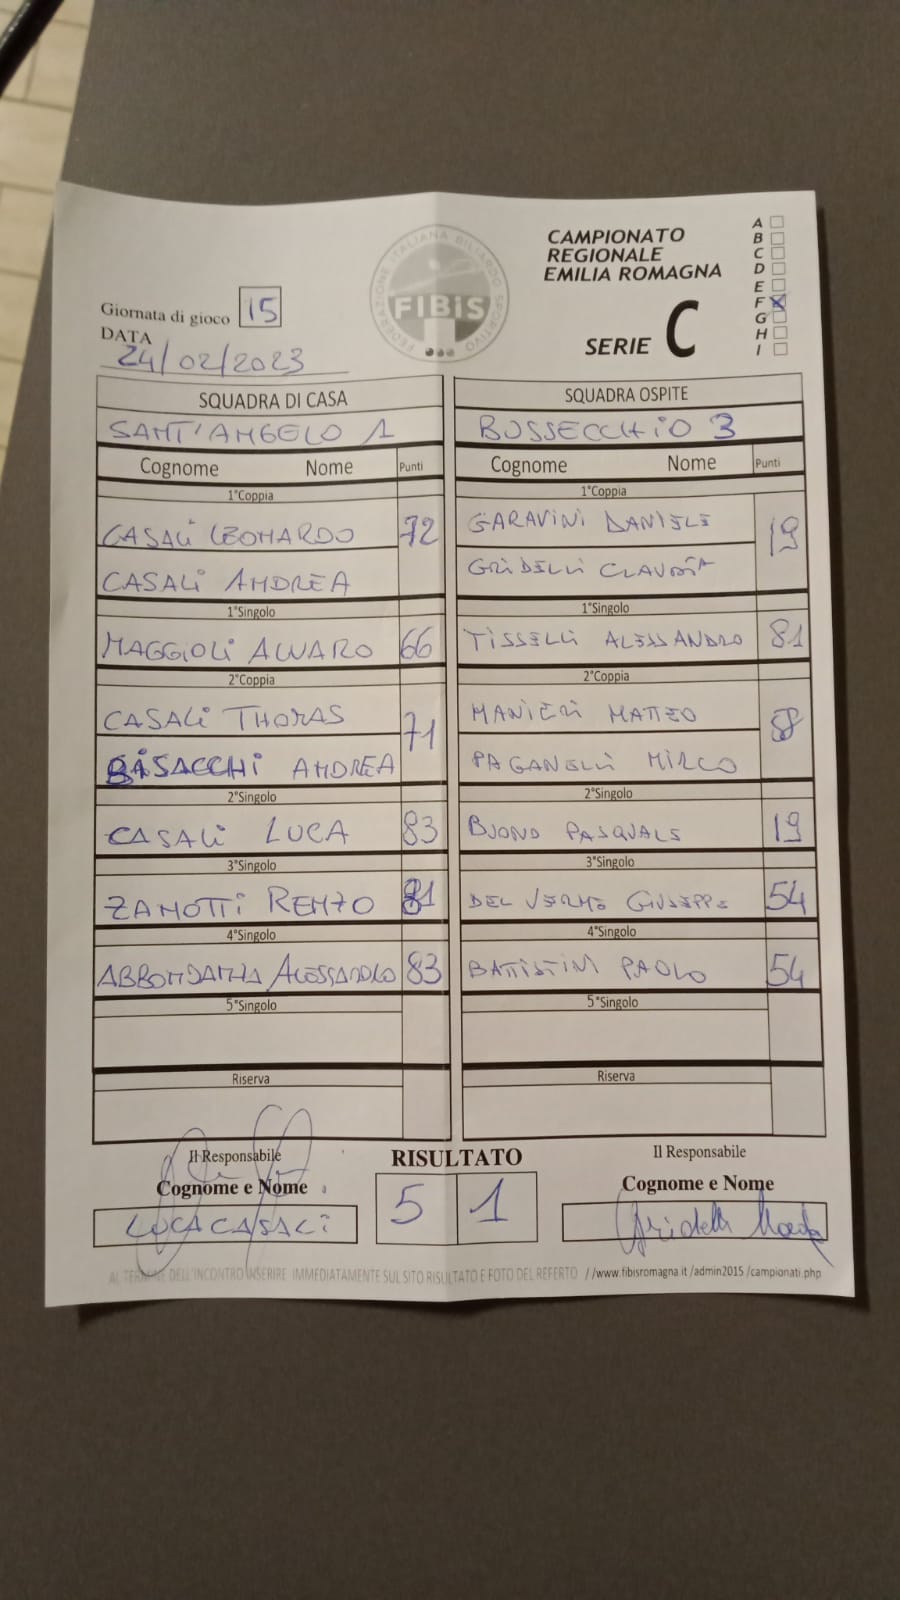 CAMPIONATO
REGIONALE
EMILIA ROMAGNA
SERIE C
A
B
C
D
E
F X
G
H
I
FEDERAZIONE ITALIANA BILIARDO SPORTIVO
FIBiS
Giornata di gioco 15
DATA
24/02/2023
SQUADRA DI CASA SQUADRA OSPITE
SANT'ANGELO 1 BUSSECCHIO 3
Cognome Nome Punti Cognome Nome Punti
1°Coppia 1°Coppia
CASALI LEONARDO 72 GARAVINI DANIELE 19
CASALI ANDREA GRIDELLI
1°Singolo 1°Singolo
MAGGIOLI ALVARO 66 TISSELLI ALESSANDRO 81
2°Coppia 2°Coppia
CASALI THOMAS 71 MANIERI MATTEO
BISACCHI ANDREA PAGANELLI MIRCO
2°Singolo 2°Singolo
CASALI LUCA 83 BUONO PASQUALE 19
3°Singolo 3°Singolo
ZANOTTI RENZO 81 DEL VERME GIUSEPPE 54
4°Singolo 4°Singolo
ABBONDANZA ALESSANDRO 83 BATTISTINI PAOLO 54
5°Singolo 5°Singolo
Riserva Riserva
Il Responsabile RISULTATO Il Responsabile
Cognome e Nome 5 1 Cognome e Nome
LUCA CASALI Gridelli
AL TERMINE DELL'INCONTRO INSERIRE IMMEDIATAMENTE SUL SITO RISULTATO E FOTO DEL REFERTO //www.fibisromagna.it /admin2015 /campionati.php